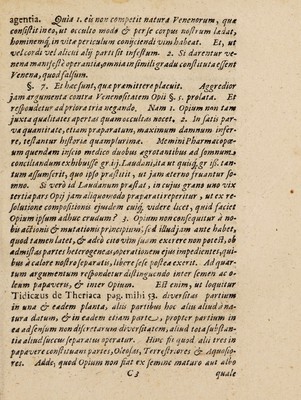 agentia. Quia 1. eis non competit natura Venenorum, quæ
consistit in eo, ut occulto modo & per se corpus nostrum lædat,
hominemq́; in vita periculum conjiciendi vim habeat. Et, ut
vel cordi vel alicui alij parti sit infestum. 2. Si darentur ve-
nena manifestè operantia, omnia in simili gradu constituta essent
Venena, quod falsum.
§. 7. Et hæc sunt, quæ præmittere placuit. Aggredior
jam argumenta contra Venenositatem Opii §. 5. prolata. Et
respondetur ad priora tria negando. Nam 1. Opium non tam
juxta qualitates apertas quam occultas nocet. 2. In satis par-
va quantitate, etiam præparatum, maximum damnum infer-
re, testantur historiæ quamplurimæ. Memini Pharmacopœ-
um quendam inscio medico duobus ægrotantibus ad somnum
conciliandum exhibuisse gr. ij. Laudani, ita ut quiq́; gr. iß. tan-
tum assumserit, quo ipso præstitit, ut jam æternò fruantur so-
mno. Si verò id Laudanum præstat, in cujus grano uno vix
tertia pars Opij jam aliquomodo præparati reperitur, ut ex re-
solutione compositionis ejusdem cuiq́; videre licet, quid faciet
Opium ipsum adhuc crudum? 3. Opium non consequitur à no-
bis actionis & mutationis principium; sed illud jam ante habet,
quod tamen latet, & adeò cito vim suam exerere non potest, ob
admistas partes heterogeneas operationem ejus impedientes, qui-
bus à calore nostro separatis, libere sese postea exerit. Ad quar-
tum argumentum respondetur distinguendo inter semen ac o-
leum papaveru, & inter Opium. Est enim, ut loquitur
Tidicæus de Theriaca pag. mihi 53. diversitas partium
in una & eadem planta, aliis partibus hoc aliis aliud à na-
tura datum, & in eadem etiam parte, propter partium in
ea ad sensum non discretarum diversitatem, aliud tota substan-
tia aliud succus separatus operatur. Hinc sit quod alii tres in
papavere constituant partes, Oleosas, Terrestriores & Aquosio-
res. Adde, quod Opium non fiat ex semine maturo aut albo
C 3 quale